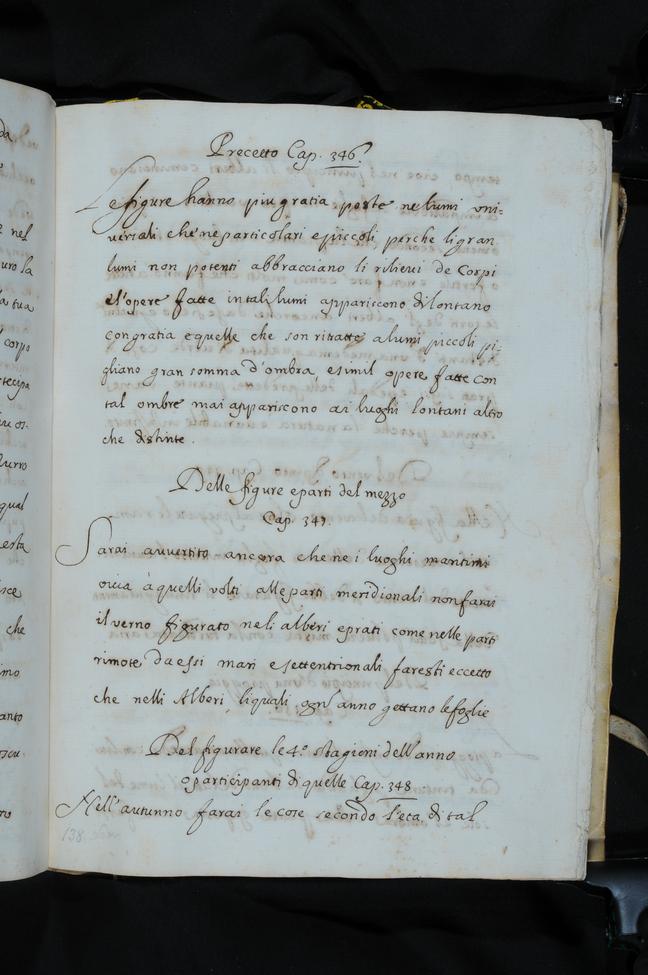 Precetto Cap. 346.
Le figure hanno piu gratia poste ne lumi uni=
versali che ne particolari e piccoli, perche li gran
lumi non potenti abbracciano li rilievi de Corpi
el'opere fatte in tali lumi appariscono di lontano
con gratia e quelle che son ritratte a lumi piccoli pi=
gliano gran somma d'ombra, e simil opere fatte con
tal ombre mai appariscono ai luoghi lontani altro
che distinte.
Delle figure e parti del mezzo
Cap. 347.
Sarai avvertito ancora che ne i luoghi maritimi
ovia à quelli volti alle parti meridionali non farai
il verno figurato neli alberi e prati come nelle parti
rimote da essi mari e settentrionali faresti eccetto
che nelli Alberi liquali ogn'anno gettano le foglie
Del figurare le 4.º stagioni dell'anno
o participanti di quelle Cap. 348
Nell'autunno farai le cose secondo l'eta, di tal
138